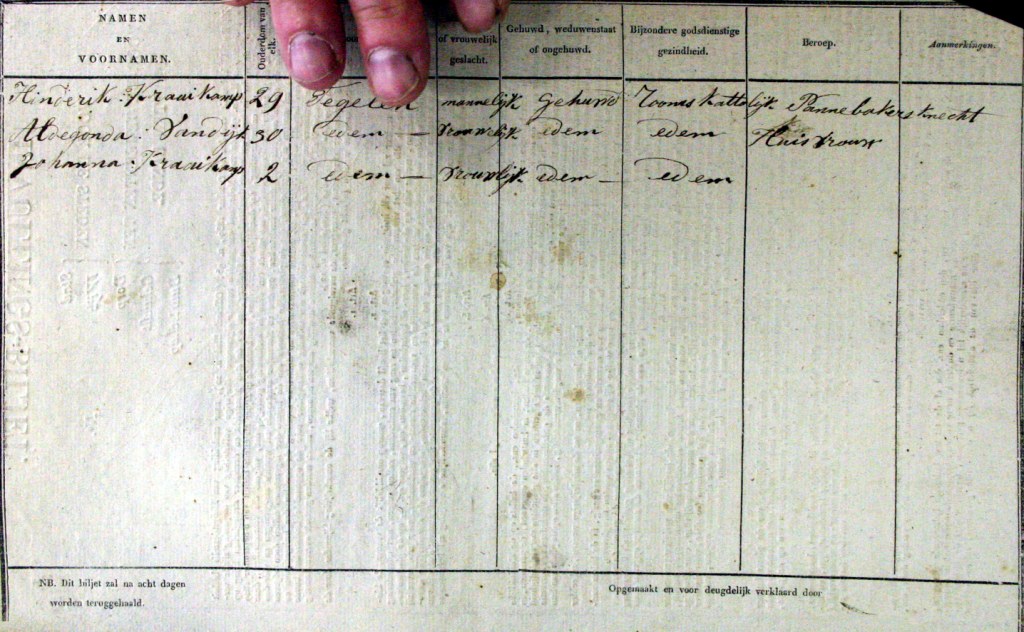 NAMEN EN VOORNAMEN. Ouderdom van elk. of vrouwelijk geslacht. Gehuwd, weduwenstaat of ongehuwd. Bijzondere godsdienstige gezindheid. Beroep. Aanmerkingen.
Hinderik Kraaikamp 29 Tegelen mannelijk Gehuwd Rooms kattolijk Pannebakers knecht
Aldegonda Van dijk 30 edem — vrouwelijk edem edem Huis vrouw
Johanna Kraaikamp 2 edem — vrouwlijk edem — edem
NB. Dit biljet zal na acht dagen
worden teruggehaald.
Opgemaakt en voor deugdelijk verklaard door